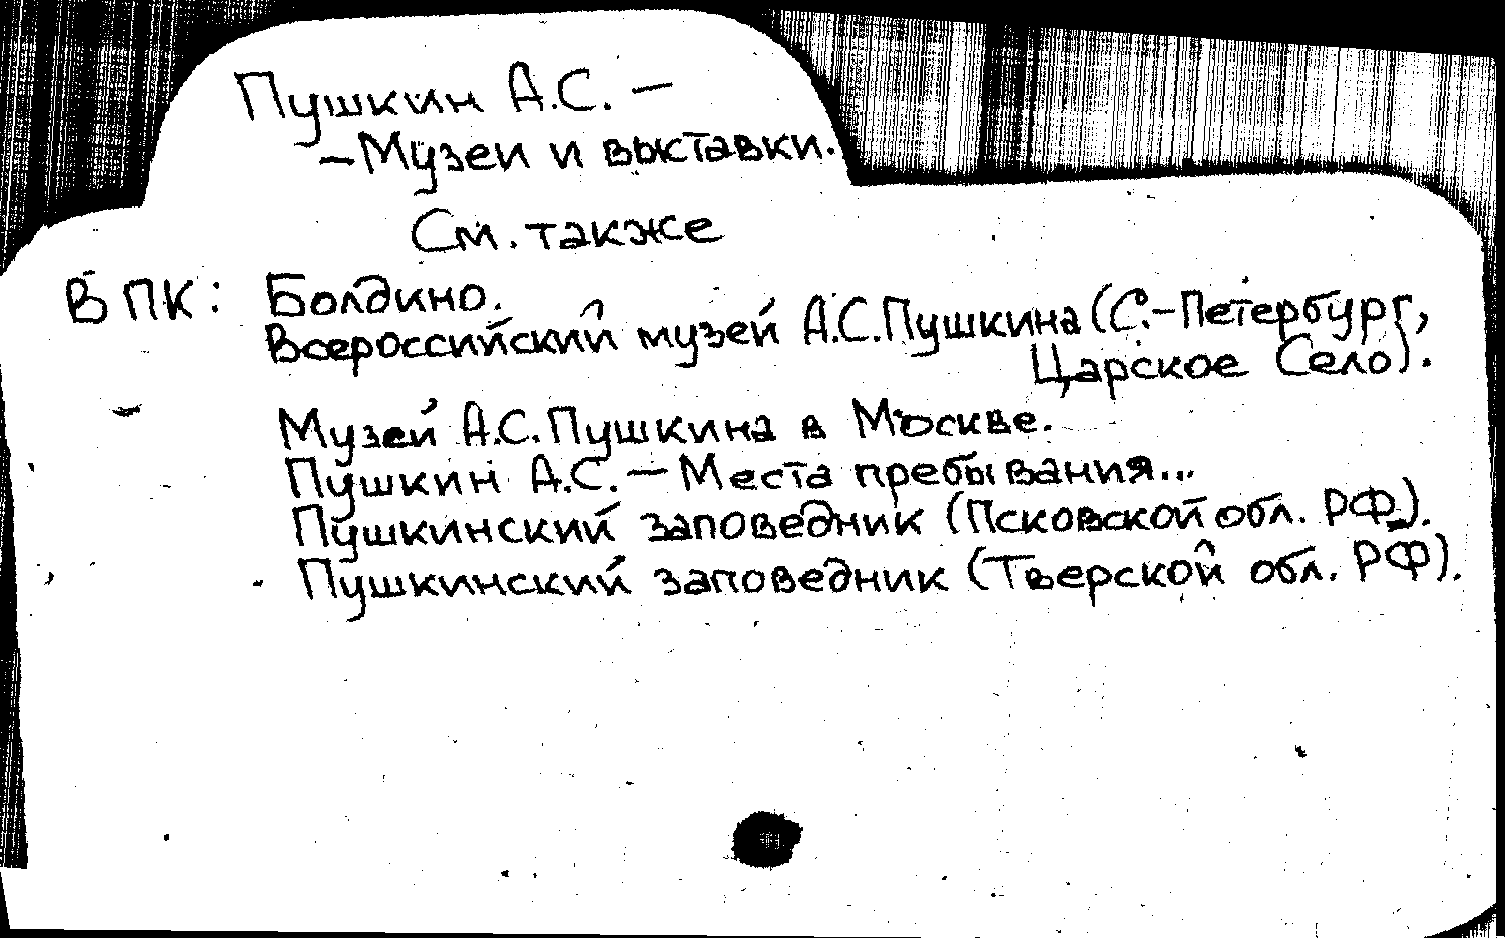 Пушкин А.С. –
– Музеи и выставки.
См. также
В ПК: Болдино.
Всероссийский музей А.С.Пушкина (С.-Петербург,
Царское Село).
Музей А.С.Пушкина в Москве.
Пушкин А.С. – Места пребывания...
Пушкинский заповедник (Псковской обл. РФ).
Пушкинский заповедник (Тверской обл. РФ).